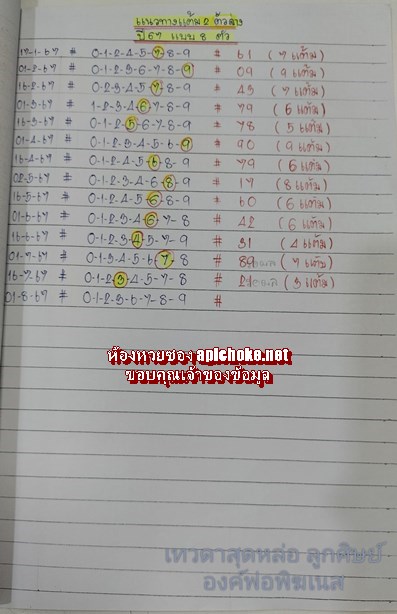 แนวทางแต้ม 2 ตัวล่าง
ปี 67 แบบ 8 ตัว
17-1-67 # 0-1-2-4-5-7-8-9 # 61 (7 แต้ม)
01-2-67 # 0-1-2-3-6-7-8-9 # 09 (9 แต้ม)
16-2-67 # 0-1-2-4-5-7-8-9 # 43 (7 แต้ม)
01-3-67 # 1-2-3-4-6-7-8-9 # 79 (6 แต้ม)
16-3-67 # 0-1-2-5-6-7-8-9 # 78 (5 แต้ม)
01-4-67 # 0-1-2-3-4-5-6-9 # 90 (9 แต้ม)
16-4-67 # 0-1-2-3-4-5-6-8-9 # 79 (6 แต้ม)
02-5-67 # 0-1-2-3-4-6-8-9 # 17 (8 แต้ม)
16-5-67 # 0-1-2-4-5-6-8-9 # 60 (6 แต้ม)
01-6-67 # 0-1-2-3-4-6-7-8 # 42 (6 แต้ม)
16-6-67 # 0-1-2-3-4-5-7-9 # 31 (4 แต้ม)
01-7-67 # 0-1-3-4-5-6-7-8 # 89 (7 แต้ม)
16-7-67 # 0-1-2-3-4-5-7-8 # 21 (3 แต้ม)
01-8-67 # 0-1-2-3-6-7-8-9 #
ห้องหวยซอง apichoke.net
ขอบคุณเจ้าของข้อมูล
เทวดาสุดหล่อ ลูกศิษย์
องค์พ่อพิฆเนส